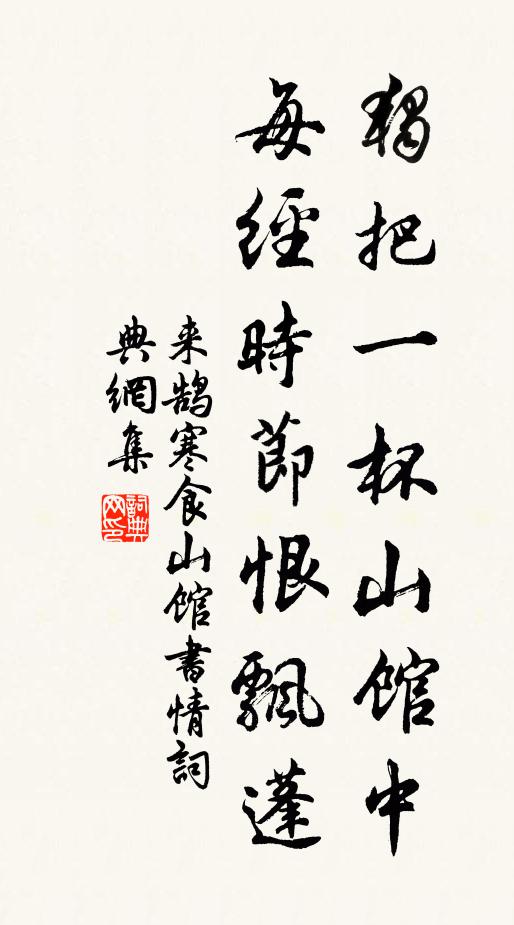 獨把一杯山館中
每經時節恨飄蓬
来鹄寒食山館書情詞
典網集
詞典网印